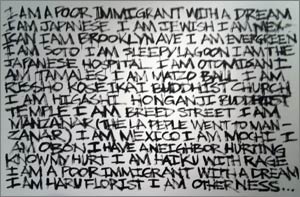 I AM A POOR IMMIGRANT WITH A DREAM
I AM JAPANESE I AM JEWISH I AM MEX-
ICAN I AM BROOKLYN AVE I AM EVERGREEN
I AM SOTO I AM SLEEPY LAGOON I AM THE
JAPANESE HOSPITAL I AM OTOMISAN I
AM TAMALES I AM MATZO BALL I AM
RISSHO KOSEIKAI BUDDHIST CHURCH
I AM HIGASHI HONGANJI BUDDHIST
TEMPLE I AM BREED STREET I AM
MANZANAR (THE LA PEOPLE WENT TO MAN-
ZANAR) I AM MEXICO I AM MOCHI I
AM OBON I HAVE A NEIGHBOR HURTING
KNOW MY HURT I AM HAIKU WITH RAGE
I AM A POOR IMMIGRANT WITH A DREAM
I AM HARU FLORIST I AM OTHERNESS...